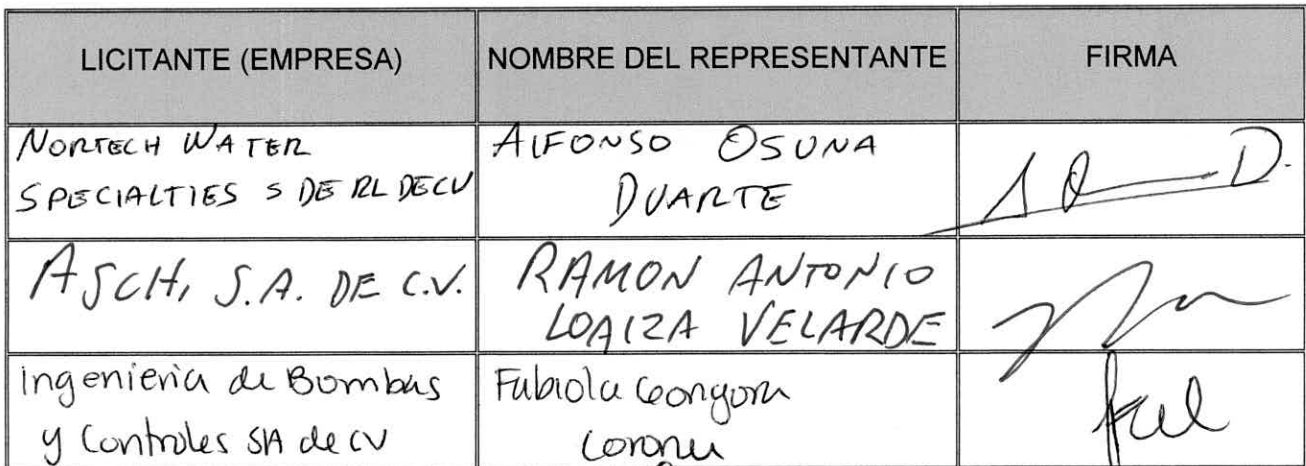 LICITANTE (EMPRESA)
NOMBRE DEL REPRESENTANTE
FIRMA
NORTECH WATER
SPECIALTIES S DE RL DE CV
ALFONSO OSUNA
DUARTE
D.
ASCH, S.A. DE C.V.
RAMON ANTONIO
LOAIZA VELARDE
Ingenieria de Bombas
y Controles SA de CV
Fabiola